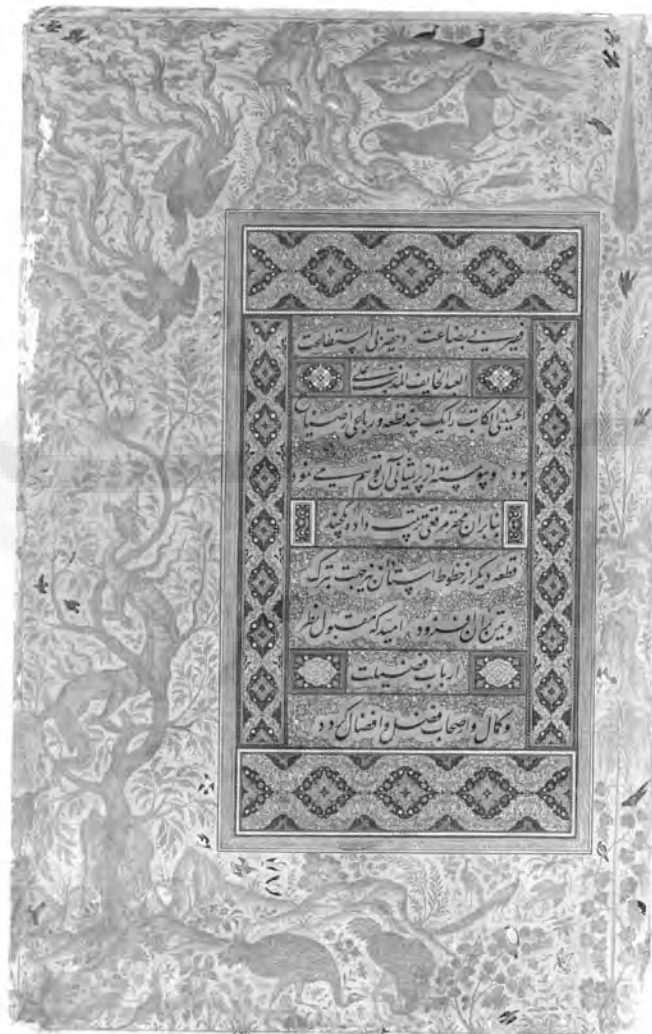 فقیر بی بضاعت و حقیر بی استطاعت
العبد الخایف المذنب علی
الحسینی الکاتب را یک چند قطعه و رباعی از صیت
بود و پیوسته از پریشانی آن توسم می نمود
بنابران بهم مرقعی ترتیب داد و چند
قطعه دیگر از خطوط استادان جهت تبرک
و تیمن بران افزود امید که مقبول نظر
ارباب فضیلت
و کمال و اصحاب فضل و افضال گردد